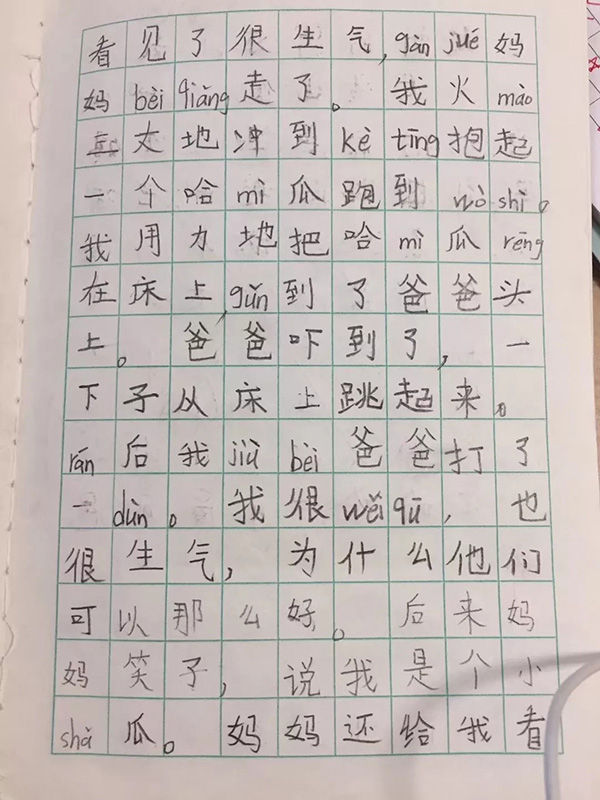 看见了很生气,gǎn jué妈
妈bèi qiǎng走了。我火mào
丈地冲到kè tīng抱起
一个哈mì瓜跑到wò shì。
我用力地把哈mì瓜rēng
在床上,gǔn到了爸爸头
上。爸爸吓到了,一
下子从床上跳起来。
rán后我jiù bèi爸爸打了
一dùn。我很wěi qū,也
很生气,为什么他们
可以那么好。后来妈
妈笑了,说我是个小
shǎ瓜。妈妈还给我看